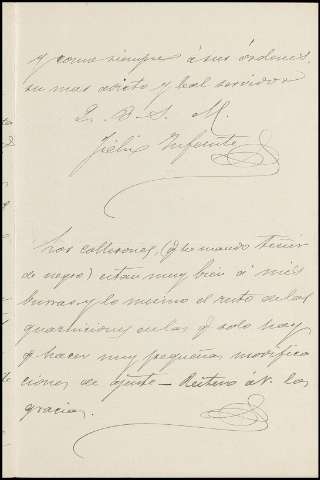 y como siempre á sus órdenes
su mas adicto y leal servidor
Q. B. S. M.
Felix Infante
Los collerones, (q he mandado tener
de negro) están muy bien á mis
burras y lo mismo el resto de las
guarniciones en las q solo hay
q hacer muy pequeñas modifica
ciones de ajuste – Reitero á V. las
gracias.